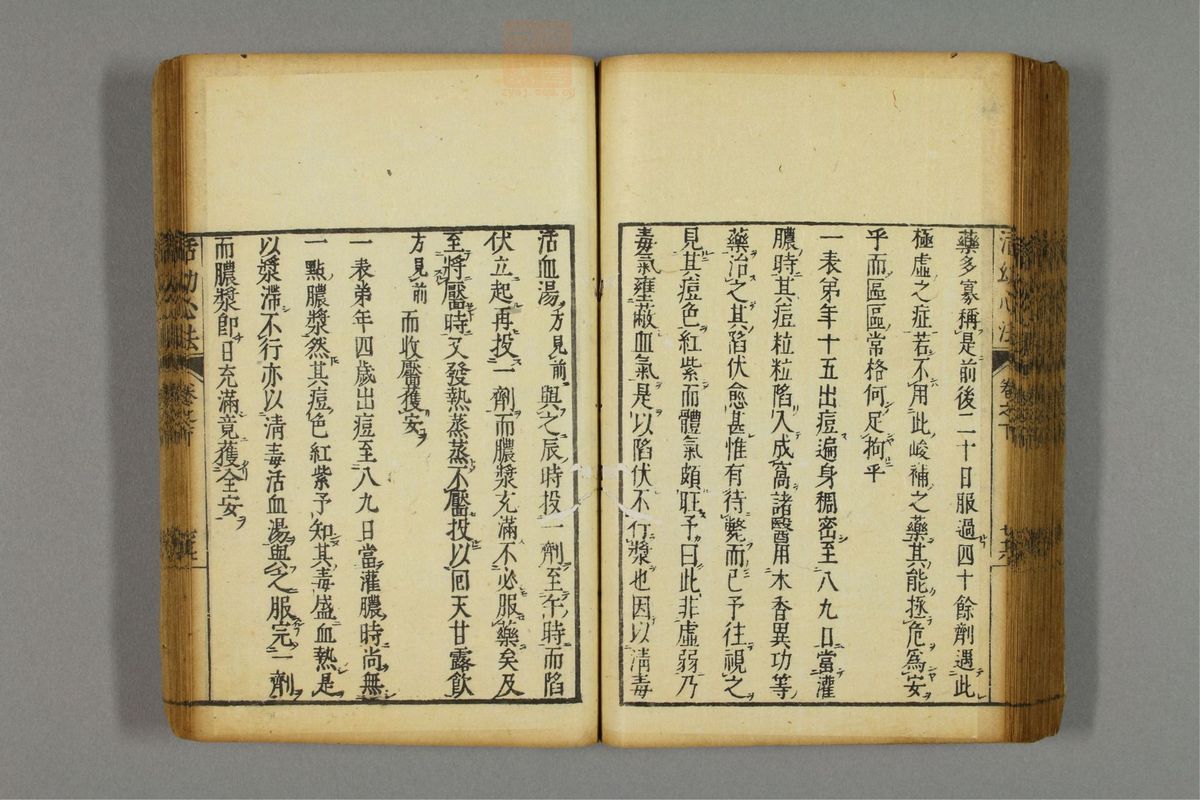 藥多寡稱是前後二十日服過四十餘劑遇此
極虛之症若不用此峻補之藥其能拯危爲安
乎而區區常格何足拘乎
一表弟年十五出痘遍身稠密至八九日當灌
膿時其痘粒粒陷入成窩諸醫用木香異功等
藥治之其陷伏愈甚惟有待斃而已予往視之
見其痘色紅紫而體氣頗旺予曰此非虛弱乃
毒氣壅蔽血氣是以陷伏不行漿也因以淸毒
活血湯方見前與之辰時投一劑至午時而陷
伏立起再投一劑而膿漿充滿不必服藥矣及
至將靨時又發熱蒸蒸不靨投以囘天甘露飮
方見前而收靨獲安
一表弟年四歲出痘至八九日當灌膿時尚無
一點膿漿然其痘色紅紫予知其毒盛血熱是
以漿滯不行亦以淸毒活血湯與之服完一劑
而膿漿卽日充滿竟獲全安
活幼心法
卷之下